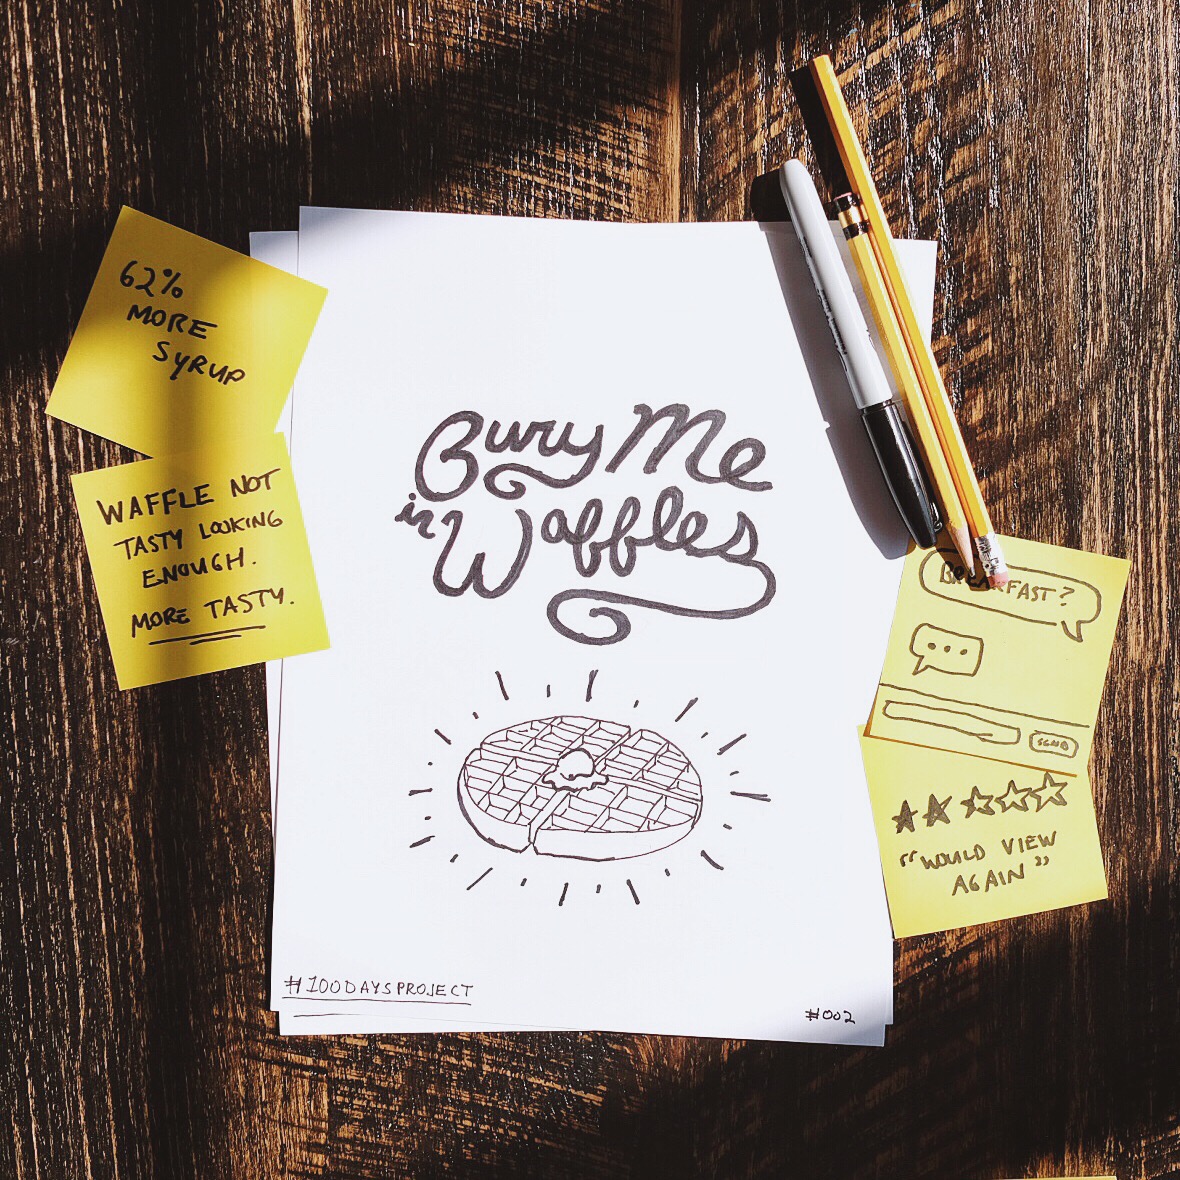 62%
MORE
SYRUP
WAFFLE NOT
TASTY LOOKING
ENOUGH.
MORE TASTY.
Bury Me
in Waffles
#100DAYSPROJECT
#002
BREAKFAST?
...
SEND
"WOULD VIEW
AGAIN"